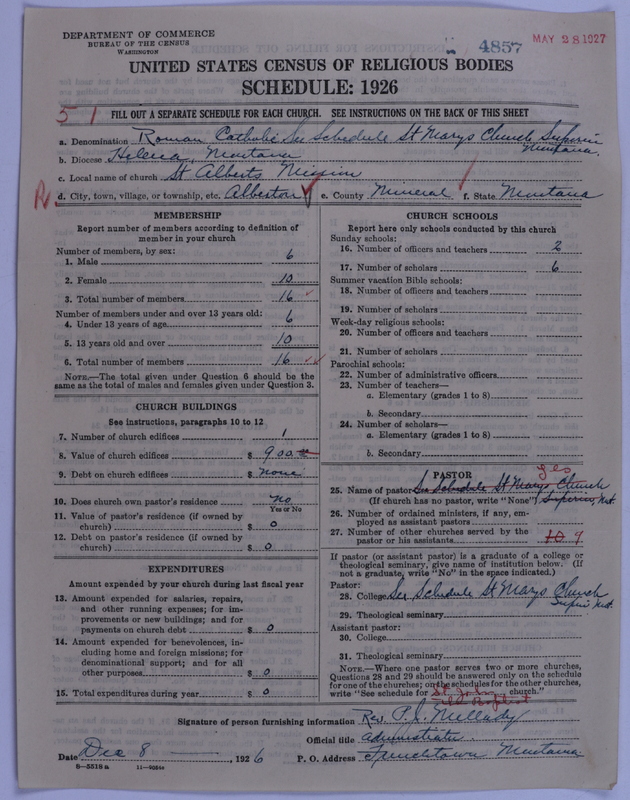 DEPARTMENT OF COMMERCE
BUREAU OF THE CENSUS
WASHINGTON
4857
MAY 28 1927
UNITED STATES CENSUS OF RELIGIOUS BODIES
SCHEDULE: 1926
51
FILL OUT A SEPARATE SCHEDULE FOR EACH CHURCH. SEE INSTRUCTIONS ON THE BACK OF THIS SHEET
a. Denomination Roman Catholic See Schedule St Marys Church Superior Montana.
b. Diocese Helena, Montana
c. Local name of church St Alberts Mission
d. City, town, village, or township, etc. Alberton e. County Mineral f. State Montana
MEMBERSHIP
Report number of members according to definition of
member in your church
Number of members, by sex:
1. Male 6
2. Female 10
3. Total number of members 16
Number of members under and over 13 years old:
4. Under 13 years of age 6
5. 13 years old and over 10
6. Total number of members 16
NOTE.—The total given under Question 6 should be the
same as the total of males and females given under Question 3.
CHURCH BUILDINGS
See instructions, paragraphs 10 to 12
7. Number of church edifices 1
8. Value of church edifices $ 900.00
9. Debt on church edifices $ none
10. Does church own pastor's residence No
Yes or No
11. Value of pastor's residence (if owned by
church) $ 0
12. Debt on pastor's residence (if owned by
church) $ 0
EXPENDITURES
Amount expended by your church during last fiscal year
13. Amount expended for salaries, repairs,
and other running expenses; for im-
provements or new buildings; and for
payments on church debt $ 0
14. Amount expended for benevolences, in-
cluding home and foreign missions; for
denominational support; and for all
other purposes $ 0
15. Total expenditures during year $ 0
CHURCH SCHOOLS
Report here only schools conducted by this church
Sunday schools:
16. Number of officers and teachers 2
17. Number of scholars 6
Summer vacation Bible schools:
18. Number of officers and teachers
19. Number of scholars
Week-day religious schools:
20. Number of officers and teachers
21. Number of scholars
Parochial schools:
22. Number of administrative officers
23. Number of teachers—
a. Elementary (grades 1 to 8)
b. Secondary
24. Number of scholars—
a. Elementary (grades 1 to 8)
b. Secondary
PASTOR
yes
25. Name of pastor See Schedule St Marys Church
(If church has no pastor, write "None") Superior, Mont
26. Number of ordained ministers, if any, em-
ployed as assistant pastors
27. Number of other churches served by the
pastor or his assistants 10 9
If pastor (or assistant pastor) is a graduate of a college or
theological seminary, give name of institution below. (If
not a graduate, write "No" in the space indicated.)
Pastor:
28. College See Schedule St Marys Church
Superior Mont.
29. Theological seminary
Assistant pastor:
30. College
31. Theological seminary
NOTE.—Where one pastor serves two or more churches,
Questions 28 and 29 should be answered only on the schedule
for one of the churches; on the schedules for the other churches,
write "See schedule for St. John church."
The Baptist
Signature of person furnishing information Rev. P. J. Mellady
Official title administrator
Date Dec 8, 1926 P. O. Address Frenchtown Montana
8—5518a 11—9954